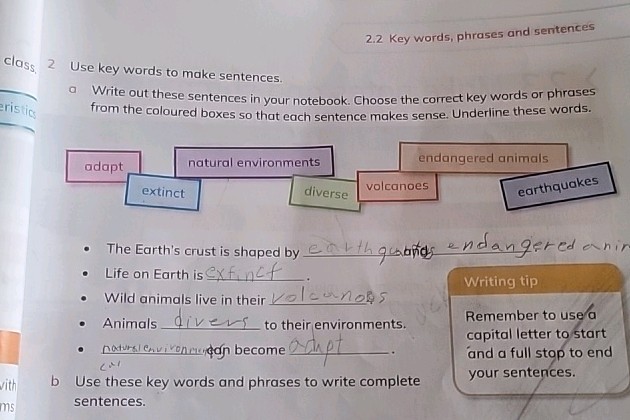 2.2 Key words, phrases and sentences
class,
2 Use key words to make sentences.
a Write out these sentences in your notebook. Choose the correct key words or phrases
eristic
from the coloured boxes so that each sentence makes sense. Underline these words.
adapt
natural environments
endangered animals
extinct
diverse
volcanoes
earthquakes
• The Earth's crust is shaped by earthquakes and endangered anim
• Life on Earth is extinct.
• Wild animals live in their volcanoes
• Animals divers to their environments.
• natural environments can become adapt.
Writing tip
Remember to use a
capital letter to start
and a full stop to end
your sentences.
b Use these key words and phrases to write complete
sentences.
with
ms